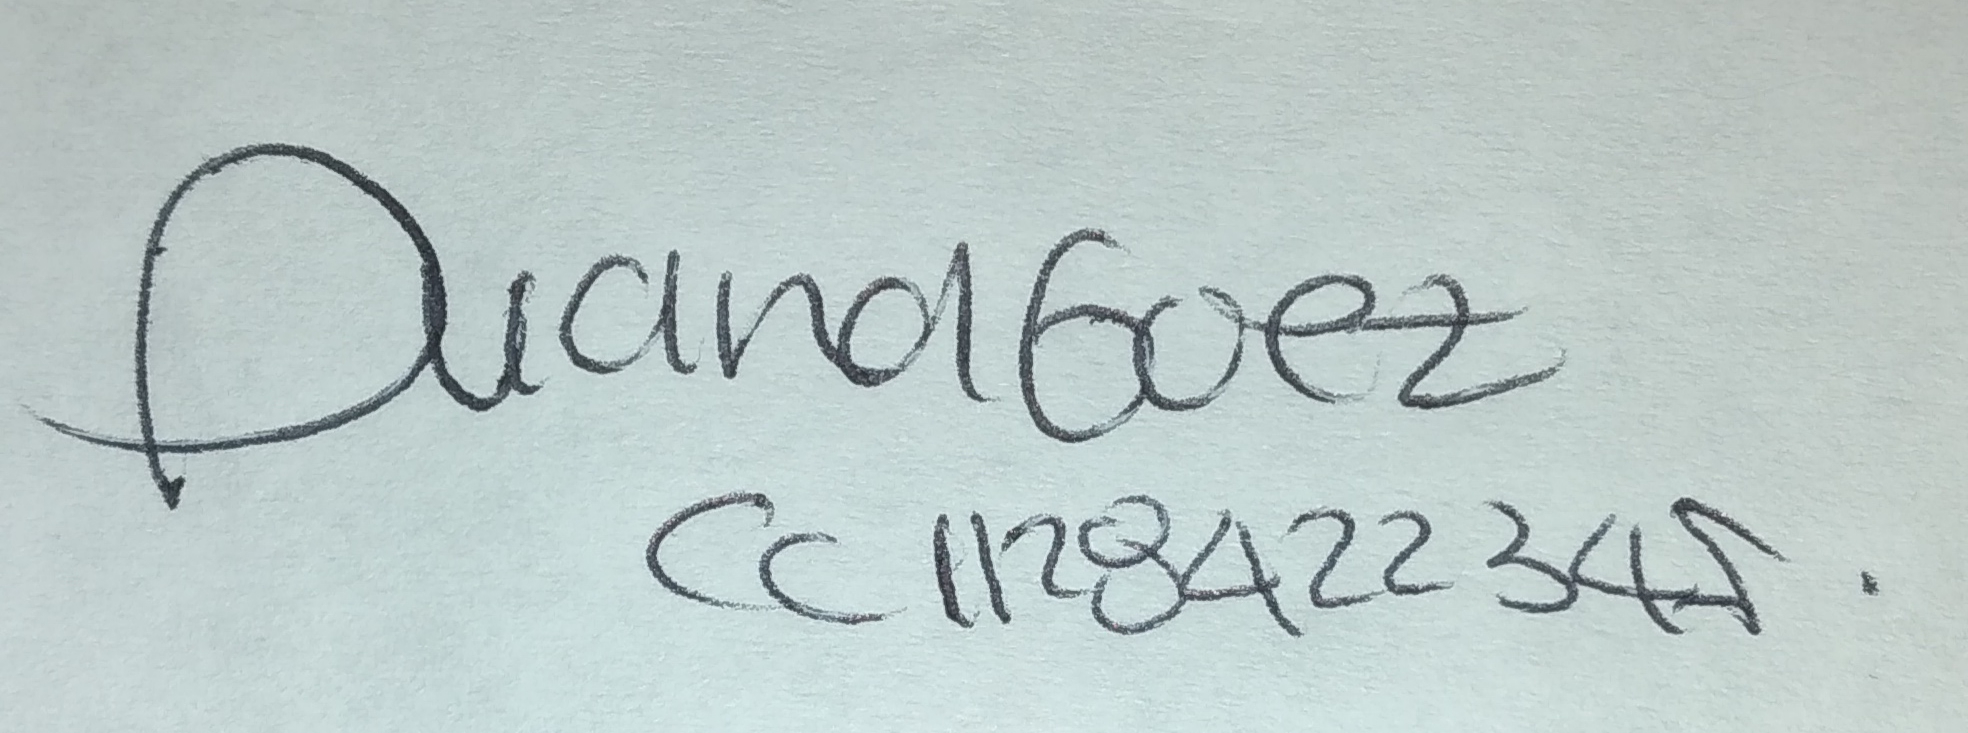 Diana Goez
CC 1128422345.